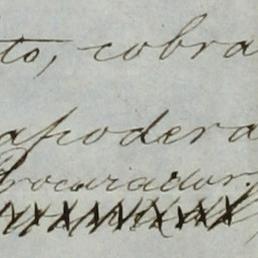 to, cobra
apodera
Procurador.